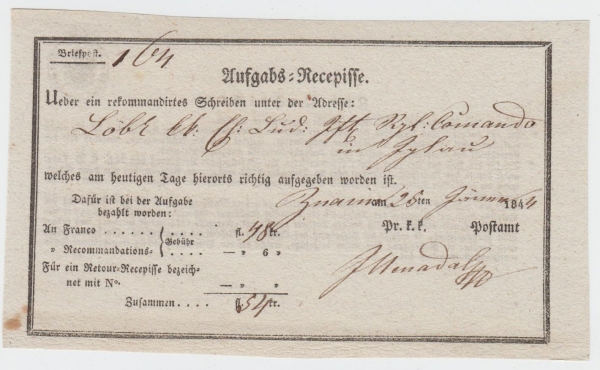 Briefpost. 164
Aufgabs-Recepisse.
Ueber ein rekommandirtes Schreiben unter der Adresse:
Löbl. kk. E: Lud: Inft. Rgt: Comando
in Iglau
welches am heutigen Tage hierorts richtig aufgegeben worden ist.
Dafür ist bei der Aufgabe bezahlt worden:
Znaim am 25ten Jänner 1844
An Franco . . . . . . fl. 48 kr.
Gebühr
Pr. k. k. Postamt
» Recommandations- — » 6 »
Für ein Retour-Recepisse bezeich-
net mit No. — » »
Zusammen . . . . fl. 54 kr.